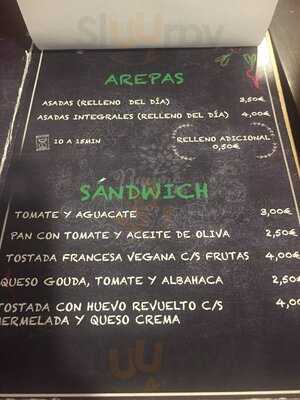 Sluurpy
AREPAS
ASADAS (RELLENO DEL DÍA) 3,50€
ASADAS INTEGRALES (RELLENO DEL DÍA) 4,00€
10 A 15MIN
RELLENO ADICIONAL
0,50€
SÁNDWICH
TOMATE Y AGUACATE 3,00€
PAN CON TOMATE Y ACEITE DE OLIVA 2,50€
TOSTADA FRANCESA VEGANA C/S FRUTAS 4,00€
QUESO GOUDA, TOMATE Y ALBAHACA 2,50
TOSTADA CON HUEVO REVUELTO C/S 4,00
MERMELADA Y QUESO CREMA